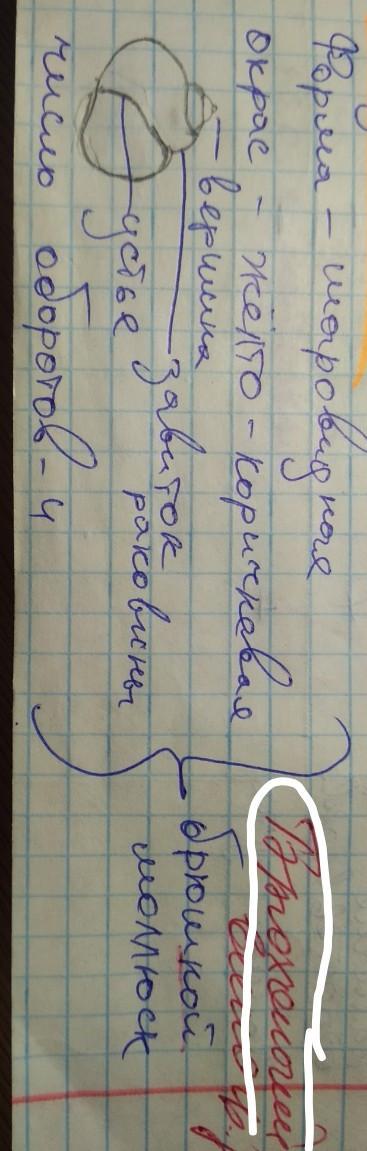 Форма - шаровидная
окрас - жёлто-коричневая
вершина
завиток
раковины
устье
число оборотов - 4
брюшной
моллюск
Брюхоногий